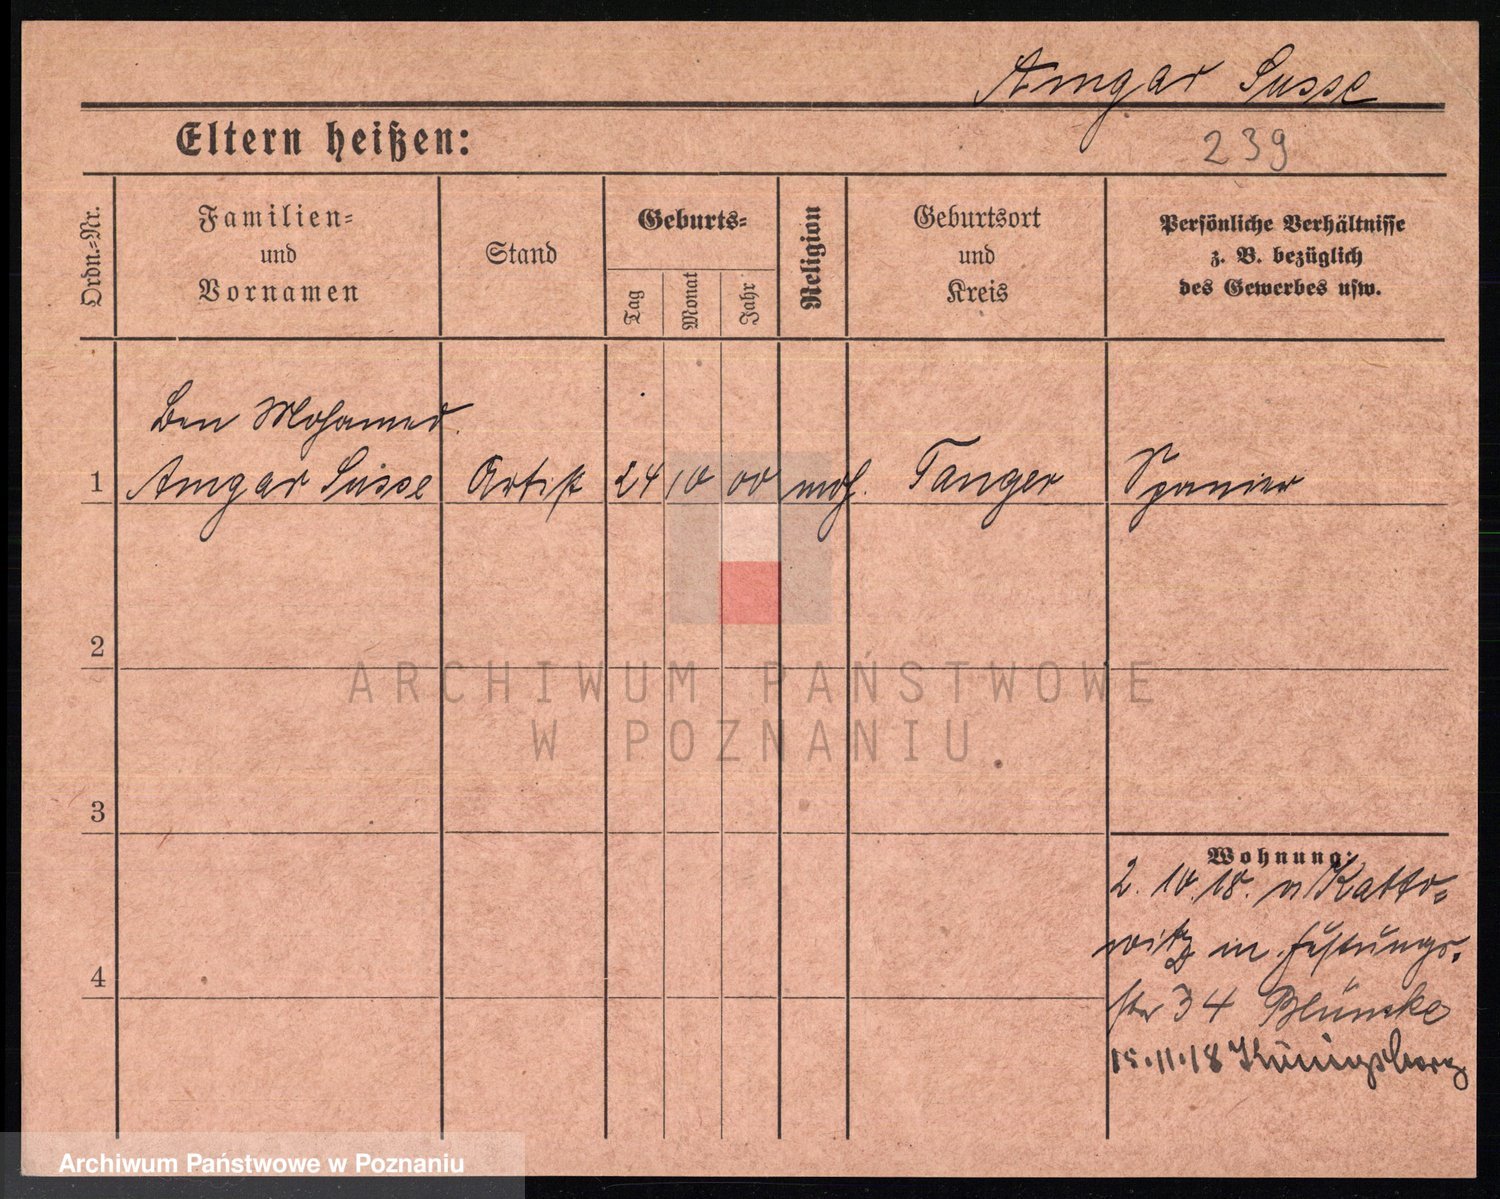 Amgar Susse
Eltern heißen:
239
Ordn.=Nr.
Familien=
und
Vornamen
Stand
Geburts=
Tag
Monat
Jahr
Religion
Geburtsort
und
Kreis
Persönliche Verhältnisse
z. B. bezüglich
des Gewerbes usw.
Ben Mohamed
1 Amgar Susse Artist 24 10 00 moh. Tanger Spanier
2
3
4
Wohnung:
2. 10. 18. v Katto=
witz in Festungs.
str 34 Blümke
15.11.18 Königsberg
ARCHIWUM PAŃSTWOWE
W POZNANIU
Archiwum Państwowe w Poznaniu